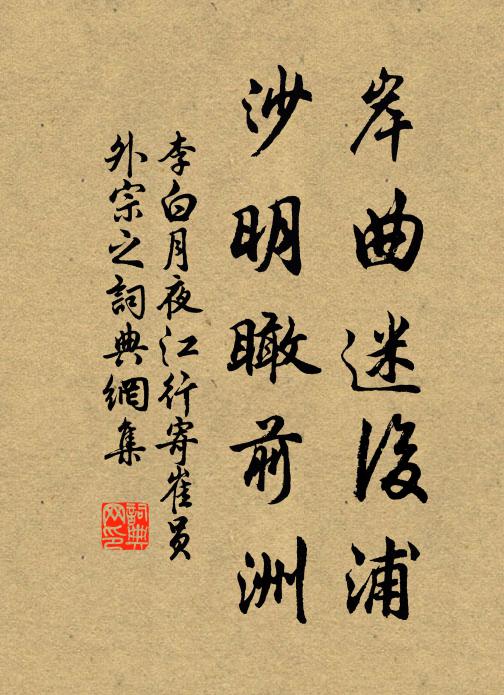 岸曲迷後浦
沙明瞰前洲
李白月夜江行寄崔員
外宗之詞典網集
詞典
网印